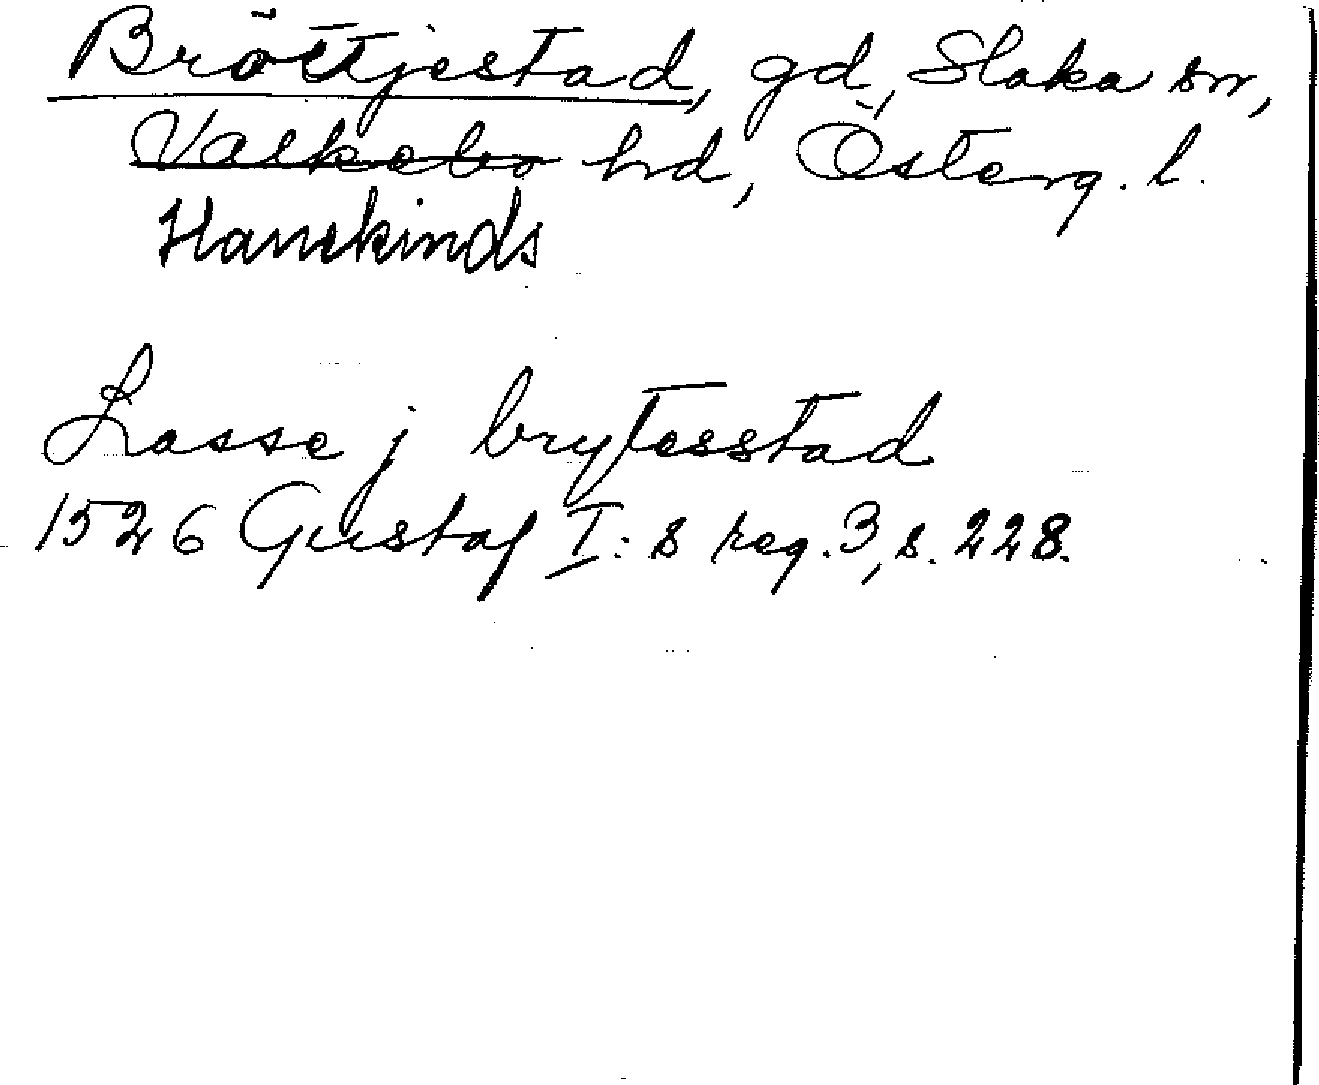 Bröttjestad, gd, Slaka sn,
Valkebo hd, Österg. l.
Hanekinds
Lasse j brytesstad
1526 Gustaf I:s reg. 3, s. 228.